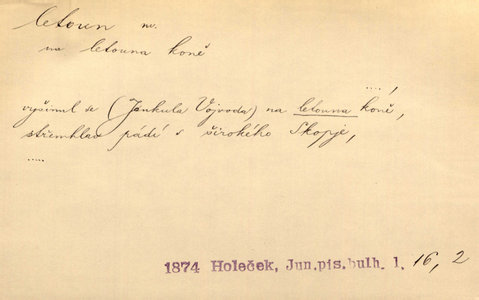 letoun m.
na letouna koně
....,
vyšinul se (Jankula Vojvoda) na letouna koně,
střemhlav pádí s širokého Skopje,
.....
1874 Holeček, Jun.pís.bulh. 1. 16, 2